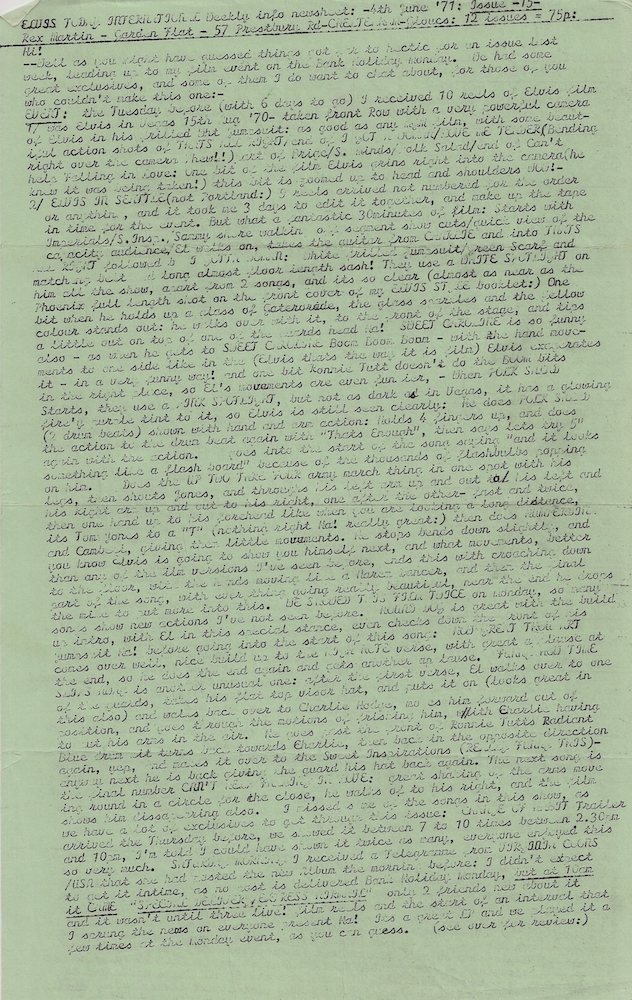 ELVIS TODAY INTERNATIONAL Weekly info newsheet: -4th June '71: Issue -15-
Rex Martin - Garden Flat - 57 Prestbury Rd-CHELTENHAM-Gloucs: 12 issues = 75p:
Hi!
---Well as you might have guessed things got to hectic for an issue last
week, leading up to my film event on the Bank Holiday Monday. We had some
great exclusives, and some of them I do want to chat about, for those of you
who couldn't make this one:-
EVENT: the Tuesday before (with 6 days to go) I received 10 reels of Elvis film
1/ was Elvis in Vegas 15th '70- taken front Row with a very powerful camera
of Elvis in his frilled Wht Jumpsuit: as good as any film, with some beaut-
iful action shots of THATS ALL RIGHT/end of I GOT A WOMAN/LOVE ME TENDER(Bending
right over the camera Phew!!) part of Bridge/S. Minds/Polk Salad/end of Can't
help Falling in Love: One bit of the film Elvis grins right into the camera(he
knew it was being taken!) this bit is zoomed up to head and shoulders WOW!-
2/ ELVIS IN SEATTLE(not Portland:) 7 reels arrived not numbered for the order
or anything, and it took me 3 days to edit it together, and make up the tape
in time for the event. But what a fantastic 30minutes of film: Starts with
Imperials/S.Insp., Sammy Shore walkin segment show cuts/quick view of the
capacity audience/El walks on, takes the guitar from CHARLIE and into THATS
ALL RIGHT followed by I GOT A WOMAN: White frilled jumpsuit/green Scarf and
matching belt long almost floor length sash! They use a WHITE SPOTLIGHT on
him all the show, apart from 2 songs, and its so clear (almost as near as the
Phoenix full length shot on the front cover of my ELVIS STYLE booklet:) One
bit when he holds up a glass of Gatorade, the glass sparkles and the yellow
colour stands out: he walks over with it, to the front of the stage, and tips
a little out on top of one of the guards head Ha! SWEET CAROLINE is so funny
also - as when he gets to SWEET CAROLINE Boom Boom Boom - with the hand move-
ments to one side like in the (Elvis thats the way it is film) Elvis exagerates
it - in a very funny way! and one bit Ronnie Tutt doesn't do the BOOM bits
in the right place, so El's movements are even funnier, - When POLK SALAD
Starts, they use a PINK SPOTLIGHT, but not as dark as in Vegas, it has a glowing
firey purple tint to it, so Elvis is still seen clearly: he does POLK SALAD
(2 drum beats) shown with hand and arm action: holds 4 fingers up, and does
the action to the drum beat again with "Thats Enough", then says lets try 5"
again with the action. goes into the start of the song saying "and it looks
something like a flash board" because of the thousands of flashbulbs popping
on him. Does the UP TWO THREE FOUR army march thing in one spot with his
legs, then shouts Jones, and throughs his left arm up and out to his left and
his Right arm up and out to his right, one after the other- fast and twice,
then one hand up to his forehead like when you are looking a long distance,
its Tom Jones to a "T" (nothing right Ha! really great:) then does
and Cambell, giving them little movements. He stops bends down slightly, and
you know Elvis is going to show you himself next, and what movements, better
than any of the film versions I've seen before, ends this with croaching down
to the floor, with the hands moving like a Harem Dancer, and then the final
part of the song, with everything going really beautiful, near the end he drops
the mike to put more into this. WE SHOWED THIS FILM TWICE on monday, so many
songs show new actions I've not seen before. HOUND DOG is great with the build
up intro, with El in this special stance, even checks down the front of his
jumpsuit Ha! before going into the start of this song: HOW GREAT THOU ART
comes over well, nice build up to the HIGH NOTE verse, with great applause at
the end, so he does the end again and gets another applause. FUNNY HOW TIME
SLIPS AWAY is another unusual one: after the first verse, El walks over to one
of the guards, takes his flat top visor hat, and puts it on (looks great in
this also) and walks back over to Charlie Hodge, moves him forward out of
position, and goes through the motions of frisking him, with Charlie having
to put his arms in the air. He goes past the front of Ronnie Tutts Radiant
Blue drum kit turns back towards Charlie, then back in the opposite direction
again, yep, and makes it over to the Sweet Inspirations (REALLY FUNNY THIS)-
anyway next he is back giving the guard his hat back again. The next song is
the final number CAN'T HELP FALLING IN LOVE: great shaking of the arms move
ing round in a circle for the close, he walks off to his right, and the film
shows him dissapearing also. I missed some of the songs in this show, as
we have a lot of exclusives to get through this issue: CHANGE OF HABIT Trailer
arrived the Thursday before, we showed it between 7 to 10 times between 2.30pm
and 10pm, I'm told I could have shown it twice as many, everyone enjoyed this
so very much. SATURDAY MORNING I received a Telegramme from COONS
/USA that she had posted the new Album the mornin' before: I didn't expect
to get it intime, as no post is delivered Bank Holiday Monday, but at 10am
it CAME "SPECIAL DELIVERY/EXPRESS AIRMAIL" only 2 friends new about it
and it wasn't until three live! film reels and the start of an interval that
I sprung the news on everyone present Ha! Its a great LP and we played it a
few times at the Monday event, as you can guess. (see over for review:)